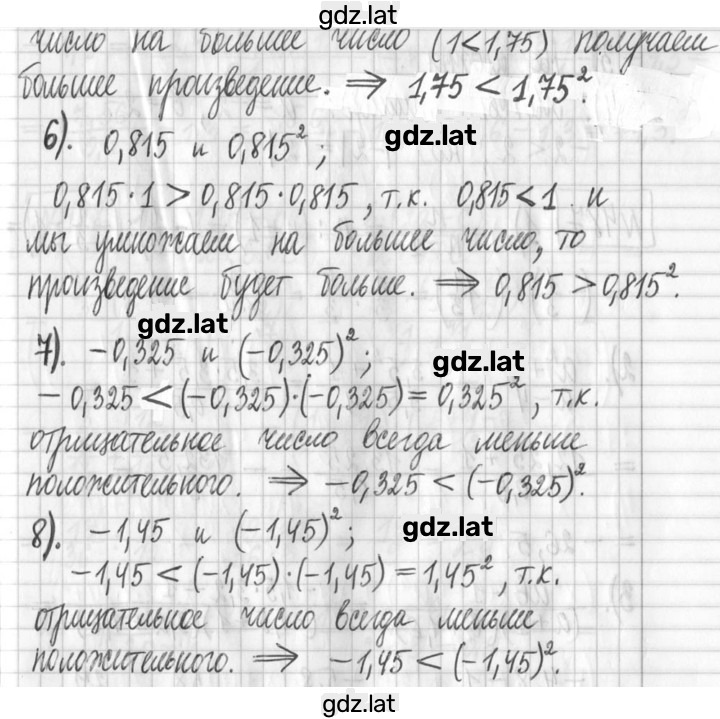 gdz.lat
число на большее число (1<1,75) получаем
большее произведение. ⇒ 1,75 < 1,75².
6). 0,815 и 0,815²; gdz.lat
0,815·1 > 0,815·0,815, т.к. 0,815<1 и
мы умножаем на большее число, то
произведение будет больше. ⇒ 0,815 > 0,815².
gdz.lat
7). -0,325 и (-0,325)²; gdz.lat
-0,325 < (-0,325)·(-0,325) = 0,325², т.к.
отрицательное число всегда меньше
положительного. ⇒ -0,325 < (-0,325)².
8). -1,45 и (-1,45)²; gdz.lat
-1,45 < (-1,45)·(-1,45) = 1,45², т.к.
отрицательное число всегда меньше
положительного. ⇒ -1,45 < (-1,45)².
gdz.lat